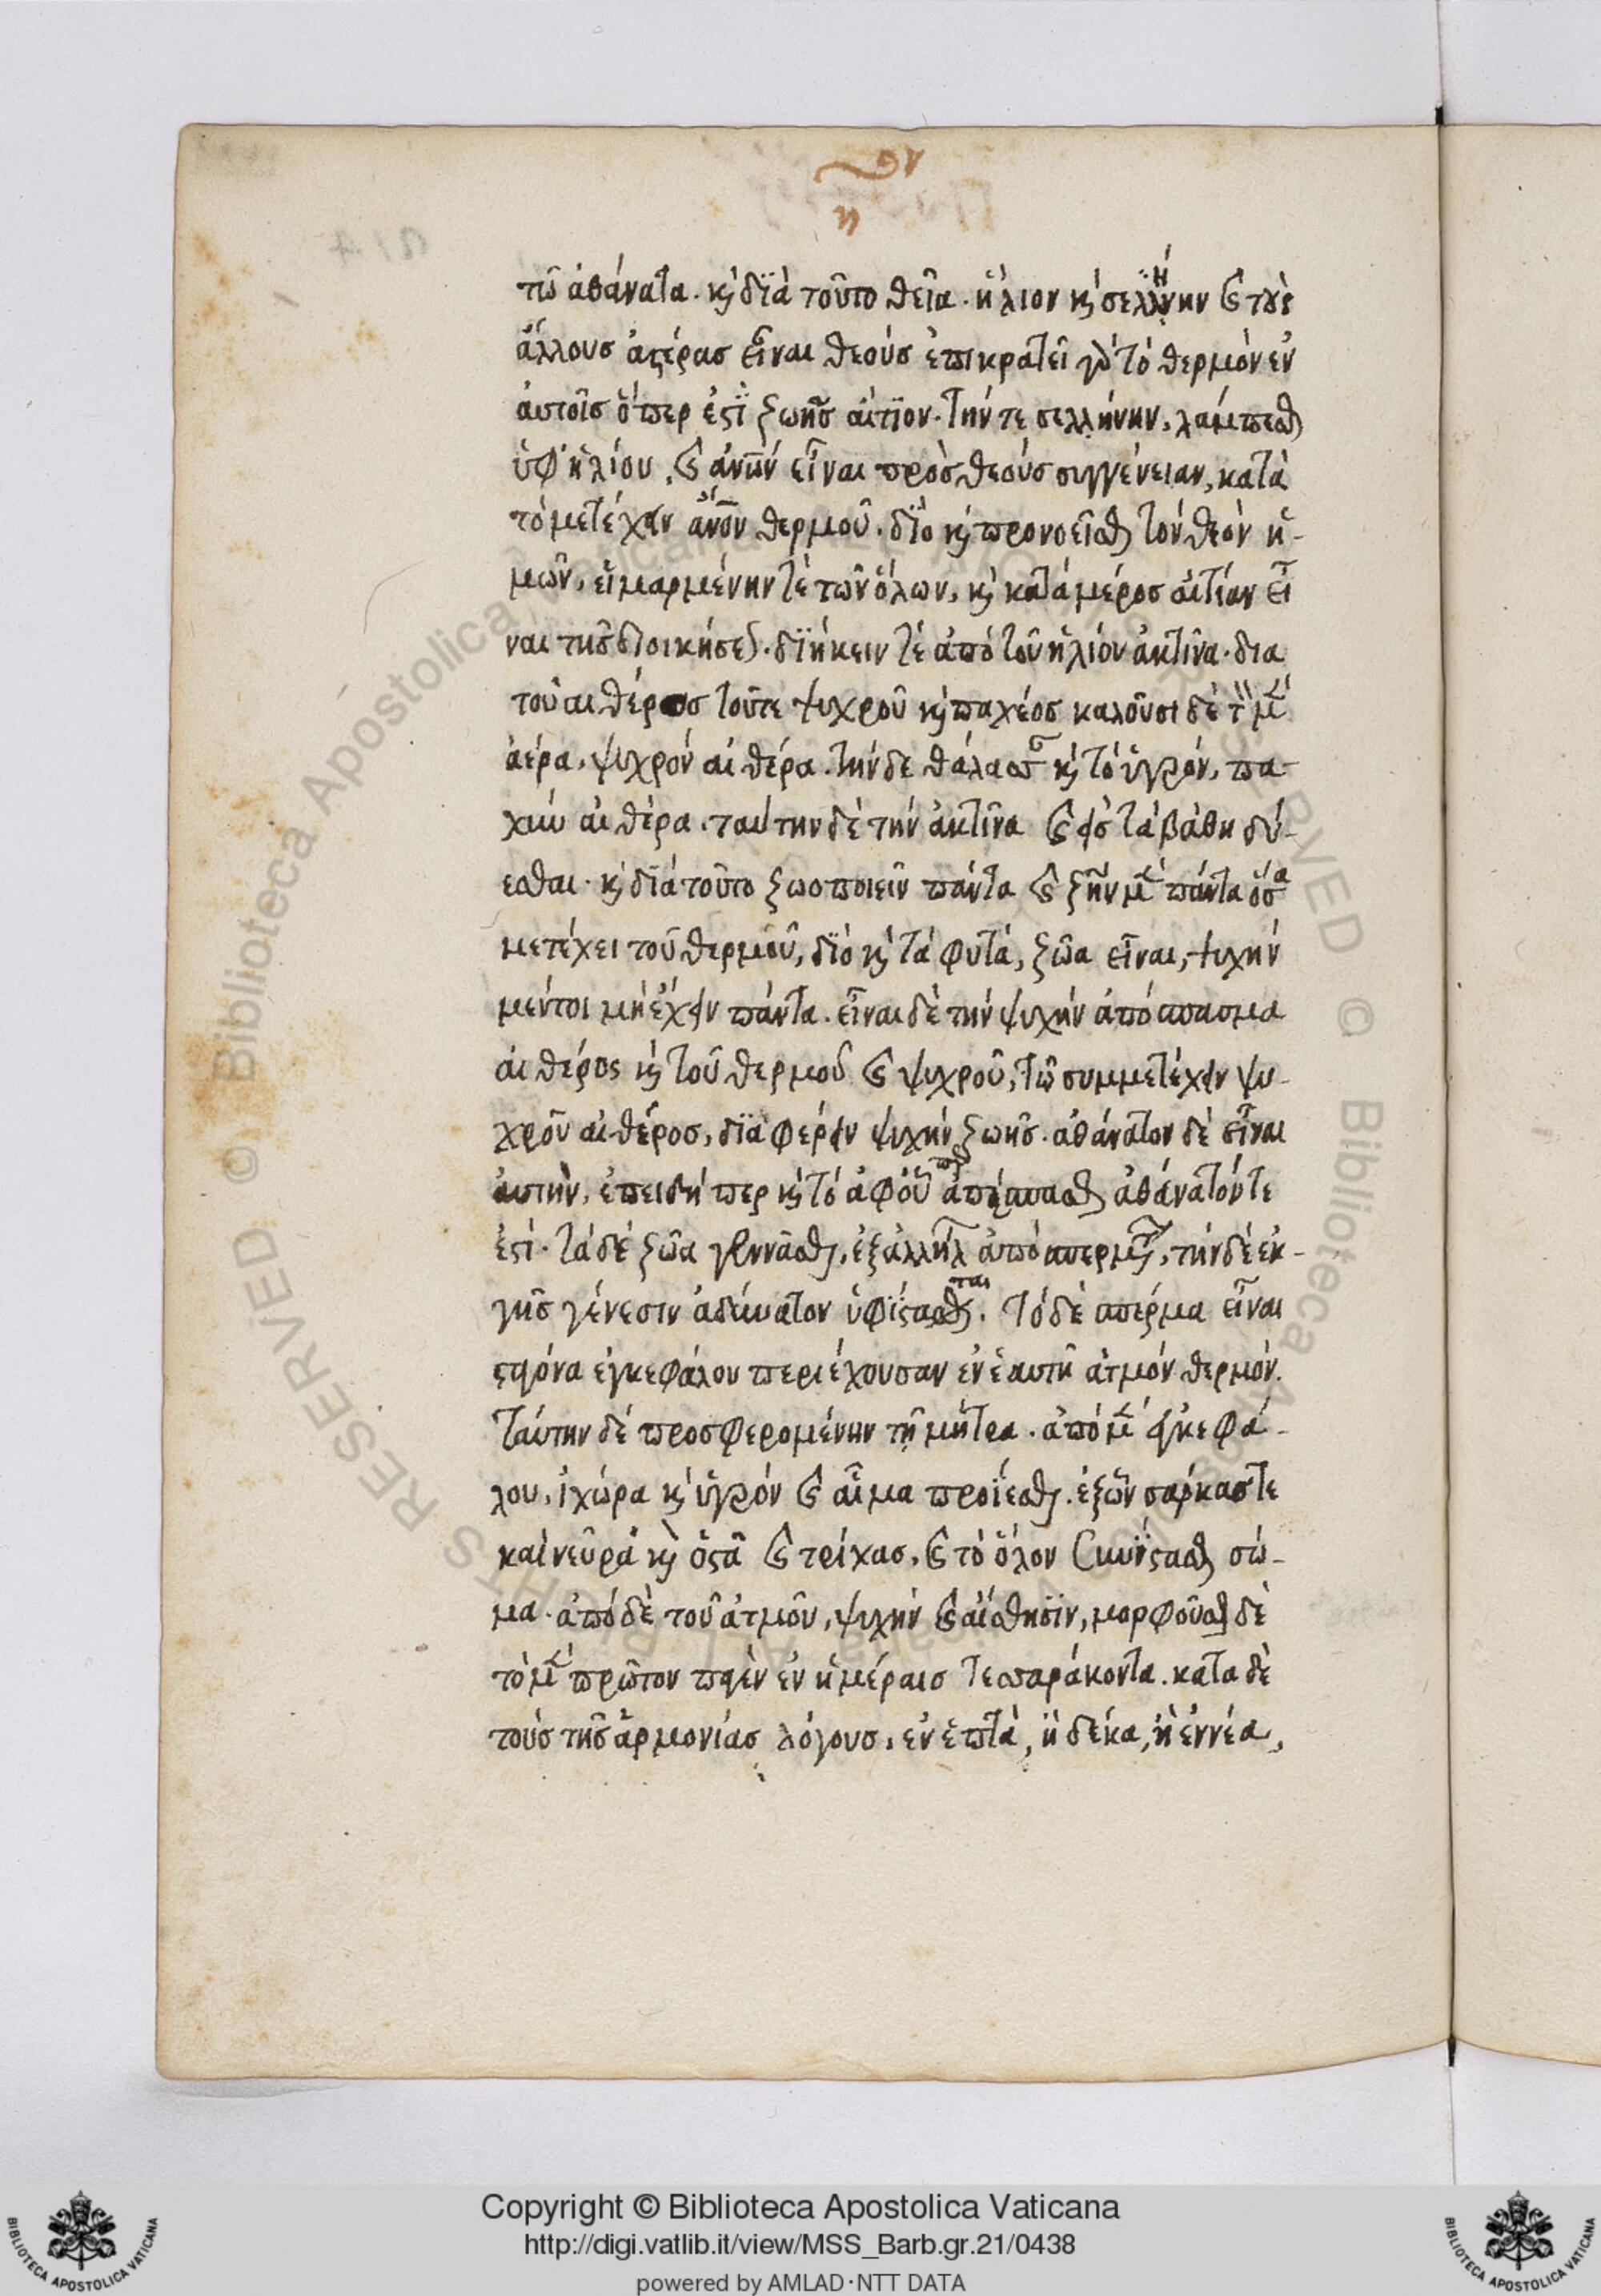 τῶ ἀθάνατα. κὴ δϊὰ τοῦτο θεῖα. ἥλιον κὴ σελλήνην καὶ τοὺς
ἄλλους ἀστέρασ εἶναι θεοὺσ ἐπικρατεῖ γὰρ τὸ θερμὸν ἐν
αὐτοῖσ ὅπερ ἐστὶ ζωῆσ αἴτϊον. τήν τε σελλήνην, λάμπεσθαι
ὑφ' ἡλίου, καὶ ἀνπῶν εἶναι πρὸσ θεοὺσ συγγένειαν, κατὰ
τὸ μετέχειν ἄνον θερμοῦ. δϊὸ κὴ προνοεῖσθαι τὸν θεὸν ἡ-
μῶν, εἱμαρμένην τὲ τῶν ὅλων, κὴ κατὰ μέροσ αἰτίαν εἶ
ναι τῆσ διοικήσεως. δϊήκειν τὲ ἀπὸ τοῦ ἡλίου ἀκτῖνα. δια
τοῦ αἰθέροσ τοῦτε ψυχροῦ κὴ παχέοσ καλοῦσι δὲ τ μὲν
ἀέρα, ψυχρὸν αἰθέρα. τὴν δε θάλασσαν κὴ τὸ ὑγρόν, πα-
χὺν αἰθέρα. ταύτην δὲ τὴν ἀκτῖνα καὶ εἰς τὰ βάθη δύ-
εσθαι. κὴ δϊὰ τοῦτο ζωοποιεῖν πάντα καὶ ζῆν μὲν πάντα ὅσα
μετέχει τοῦ θερμοῦ, δϊὸ κὴ τὰ φυτά, ζῶα εἶναι, ψυχήν
μέντοι μὴ ἔχειν πάντα. εἶναι δὲ τὴν ψυχὴν ἀπόσπασμα
αἰθέρος κὴ τοῦ θερμοῦ καὶ ψυχροῦ, τῶ συμμετέχειν ψυ-
χροῦ αἰθέροσ, δϊαφέρειν ψυχὴν ζωῆσ. ἀθάνατον δὲ εἶναι
αὐτὴν, ἐπειδήπερ κὴ τὸ ἀφ' οὗ ἀπέσπασθαι ἀθάνατόν τε
ἐστί. τὰ δὲ ζῶα γεννᾶσθαι, ἐξ ἀλλήλ ἀπὸ σπερμάτων, τὴν δὲ ἐκ-
γῆσ γένεσιν ἀδύνατον ὑφίστασθαι. τὸ δὲ σπέρμα εἶναι
σταγόνα ἐγκεφάλου περιέχουσαν ἐν ἑαυτῆ ἀτμὸν θερμόν.
ταύτην δέ προσφερομένην τῇ μήτρα. ἀπὸ μὲν ἐγκεφά-
λου, ἰχώρα κὴ ὑγρόν καὶ αἷμα προΐεσθαι. ἐξ ὧν σάρκασ τε
καὶ νεῦρα κὴ ὀστᾶ καὶ τρίχασ, καὶ τὸ ὅλον συνίστασθαι σώ-
μα. ἀπὸ δὲ τοῦ ἀτμοῦ, ψυχὴν καὶ αἴσθησϊν, μορφοῦσθαι δὲ
τὸ μὲν πρῶτον παγὲν ἐν ἡμέραισ τεσσαράκοντα. κατα δὲ
τοὺσ τῆσ ἁρμονίασ λόγουσ, ἐν ἑπτὰ, ἢ δέκα, ἢ ἐννέα,
Copyright © Biblioteca Apostolica Vaticana
http://digi.vatlib.it/view/MSS_Barb.gr.21/0438
powered by AMLAD·NTT DATA